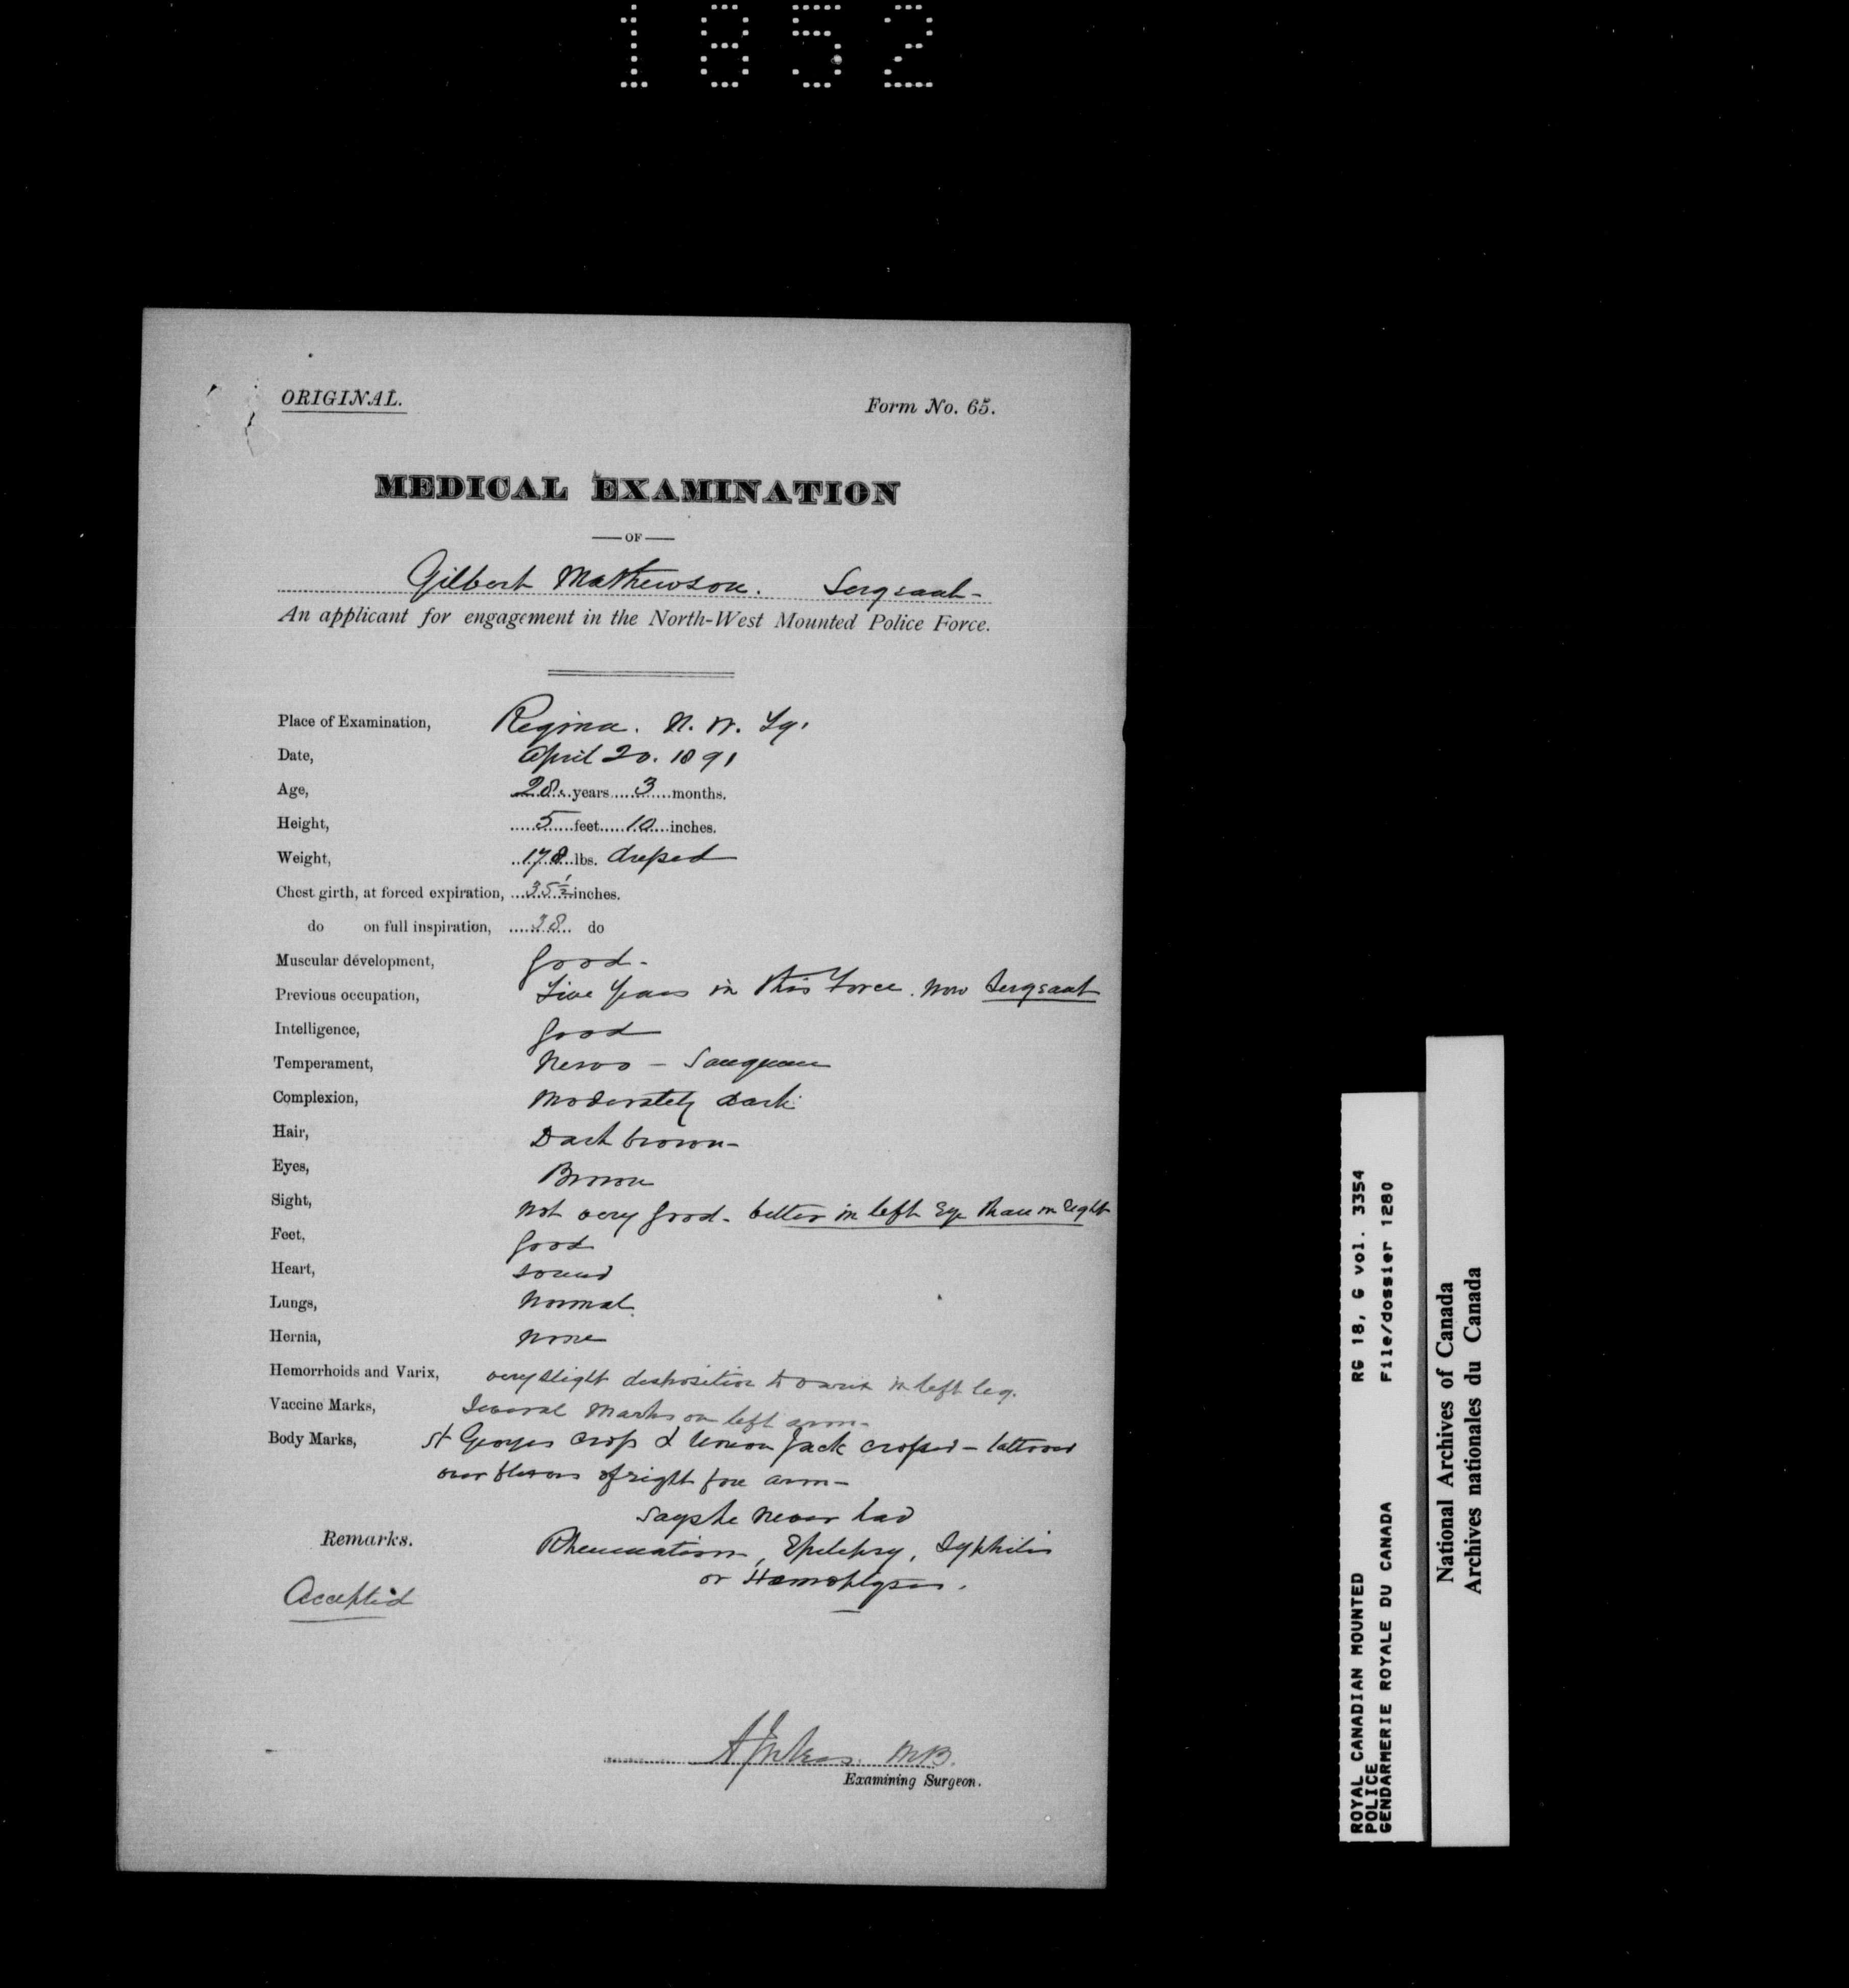 1852
ORIGINAL. Form No. 65.
MEDICAL EXAMINATION
— OF —
Gilbert Mathewson. Sergeant-
An applicant for engagement in the North-West Mounted Police Force.
Place of Examination, Regina. N. W. Ty.
Date, April 20. 1891
Age, 28 years 3 months.
Height, 5 feet 10 inches.
Weight, 178 lbs. dressed
Chest girth, at forced expiration, 35 1/2 inches.
do on full inspiration, 38 do
Muscular development, Good-
Previous occupation, Five years in this Force. Now Sergeant
Intelligence, Good
Temperament, Nervo - Sanguine
Complexion, Moderately dark
Hair, Dark brown-
Eyes, Brown
Sight, Not very good- better in left Eye than in right
Feet, Good
Heart, Sound
Lungs, Normal
Hernia, None
Hemorrhoids and Varix, very slight disposition to varix in left leg.
Vaccine Marks, Several marks on left arm-
Body Marks, St Georges Cross & Union Jack crossed - tattooed
over flexors of right fore arm-
Says he never had
Remarks. Rheumatism, Epilepsy, Syphilis
or Hemoptysis.
Accepted
M.B.
Examining Surgeon.
ROYAL CANADIAN MOUNTED RG 18, G vol. 3354
POLICE
GENDARMERIE ROYALE DU CANADA File/dossier 1280
National Archives of Canada
Archives nationales du Canada